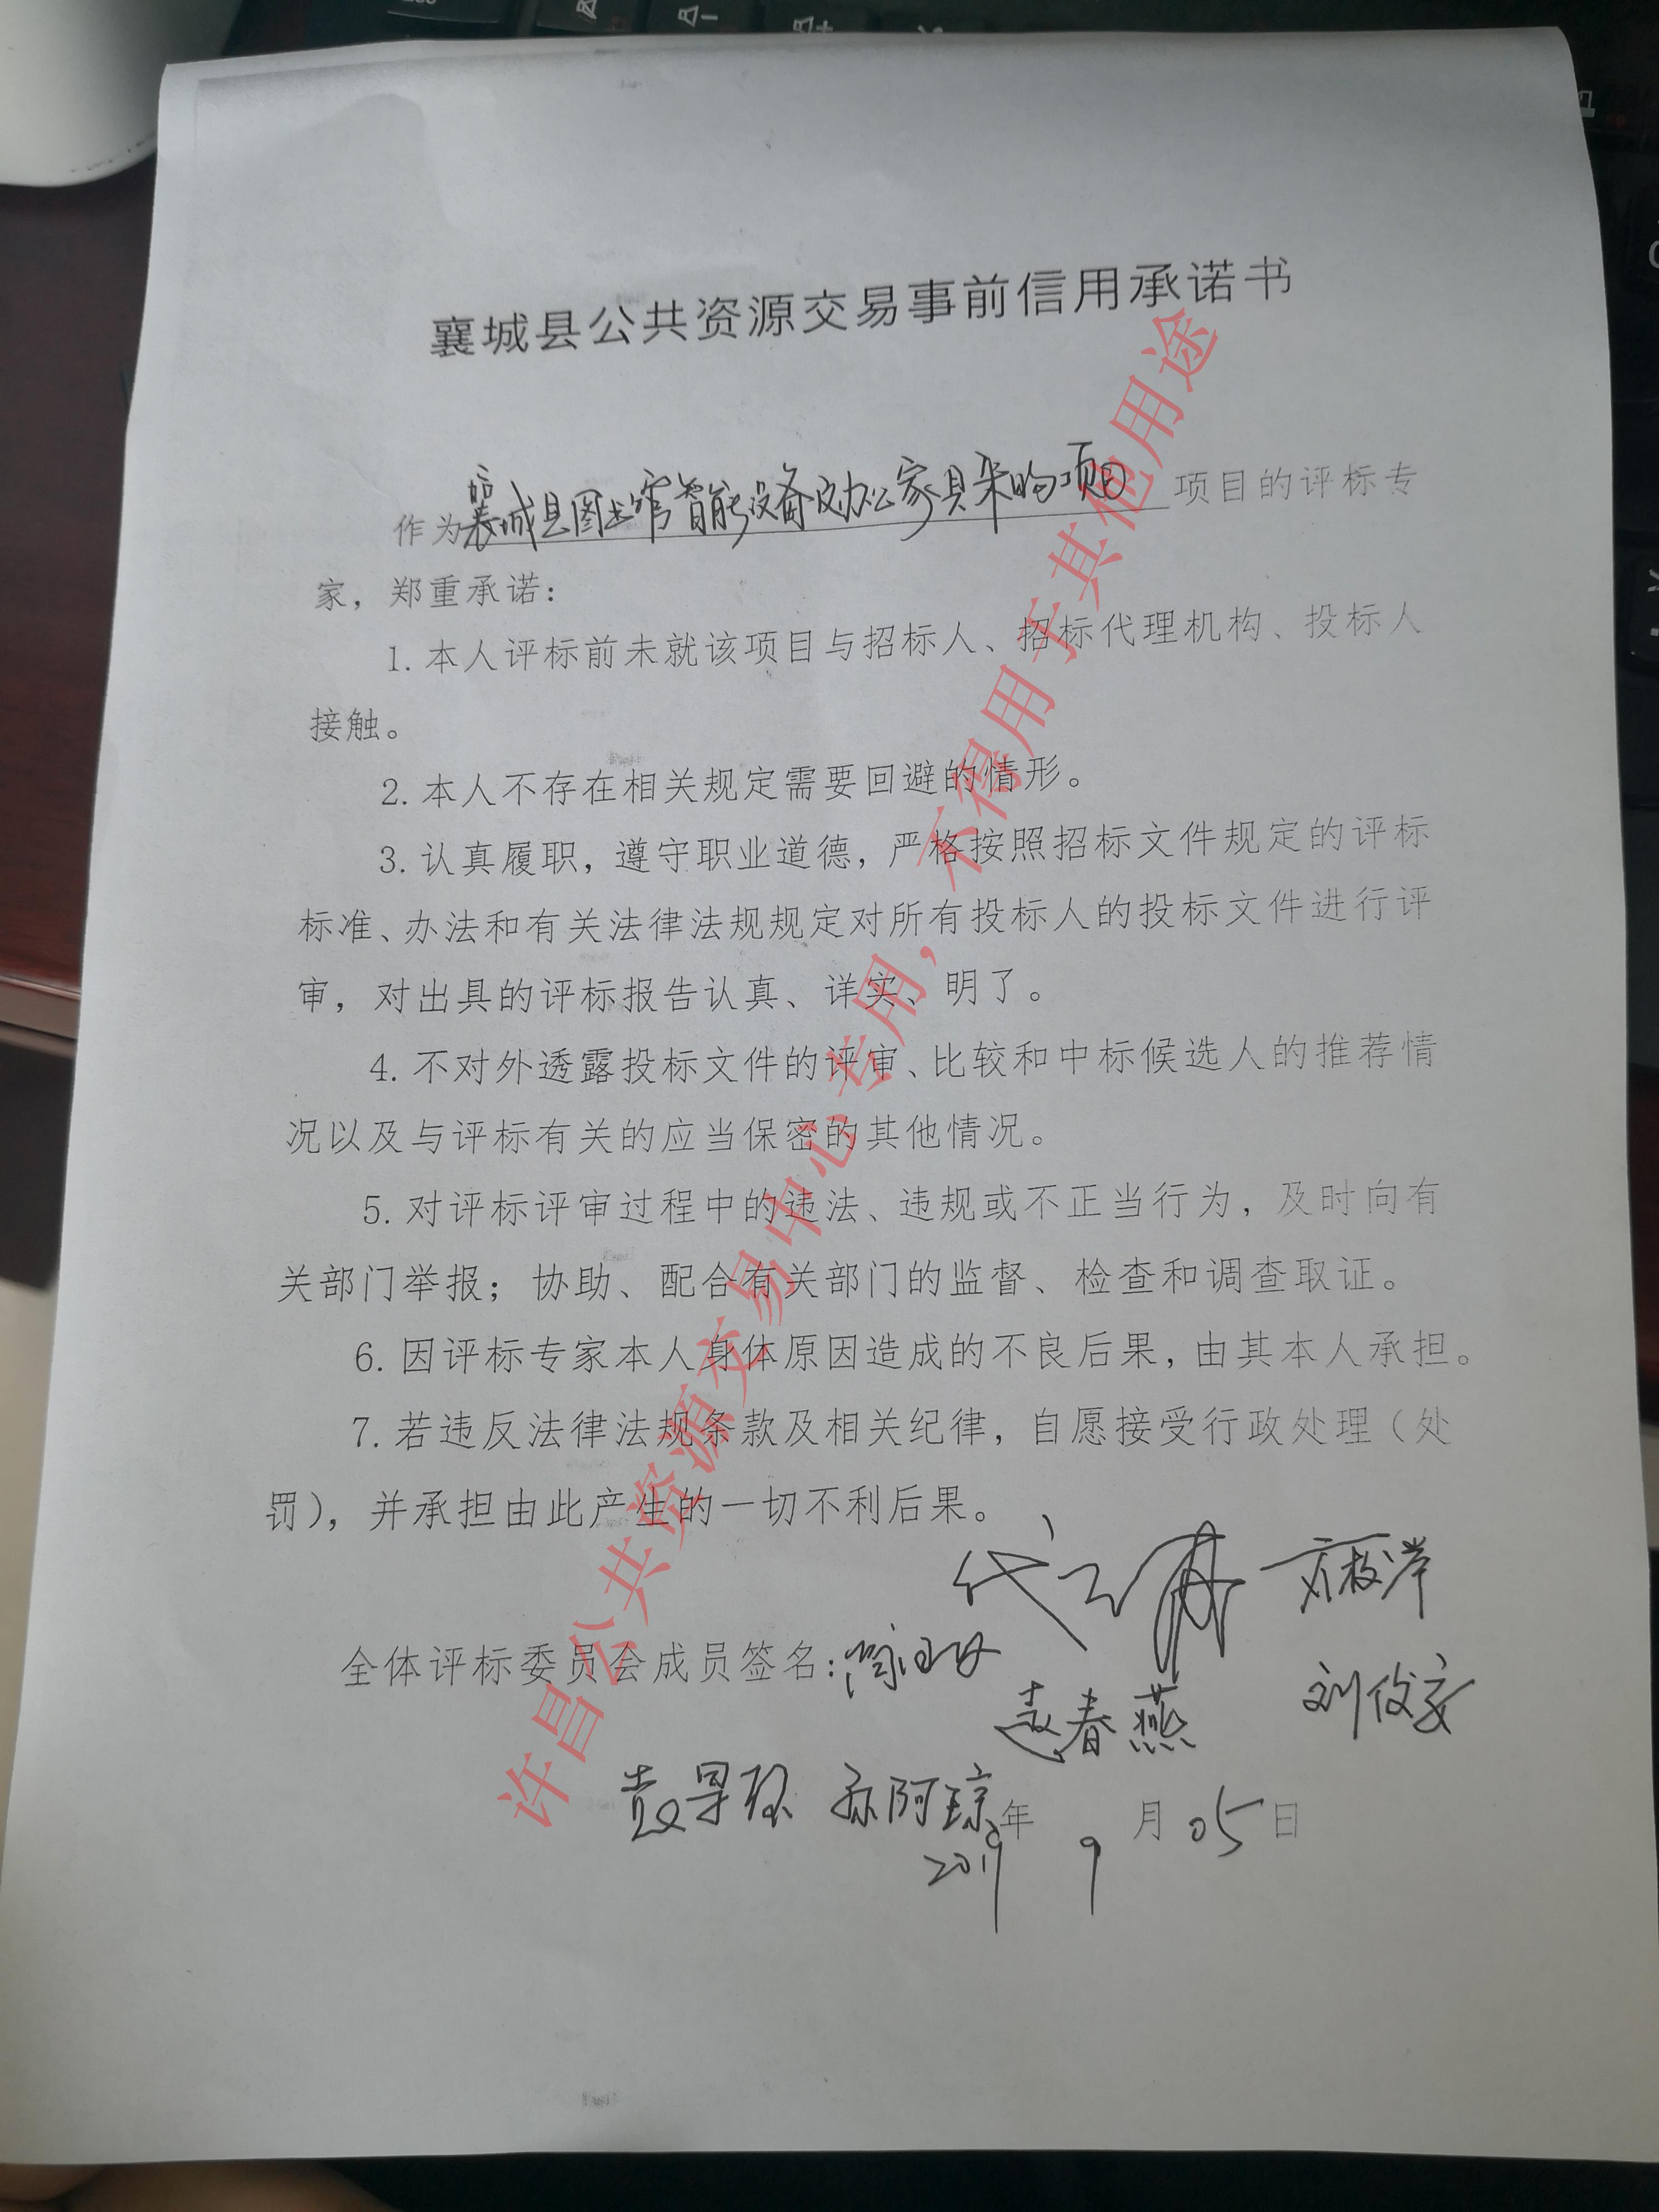 襄城县公共资源交易事前信用承诺书
作为襄城县图书馆智能设备及办公家具采购项目项目的评标专
家，郑重承诺：
1.本人评标前未就该项目与招标人、招标代理机构、投标人
接触。
2.本人不存在相关规定需要回避的情形。
3.认真履职，遵守职业道德，严格按照招标文件规定的评标
标准、办法和有关法律法规规定对所有投标人的投标文件进行评
审，对出具的评标报告认真、详实、明了。
4.不对外透露投标文件的评审、比较和中标候选人的推荐情
况以及与评标有关的应当保密的其他情况。
5.对评标评审过程中的违法、违规或不正当行为，及时向有
关部门举报；协助、配合有关部门的监督、检查和调查取证。
6.因评标专家本人身体原因造成的不良后果，由其本人承担。
7.若违反法律法规条款及相关纪律，自愿接受行政处理（处
罚），并承担由此产生的一切不利后果。
全体评标委员会成员签名：
赵春燕
2019年9月05日
许昌公共资源交易中心专用，不得用于其他用途